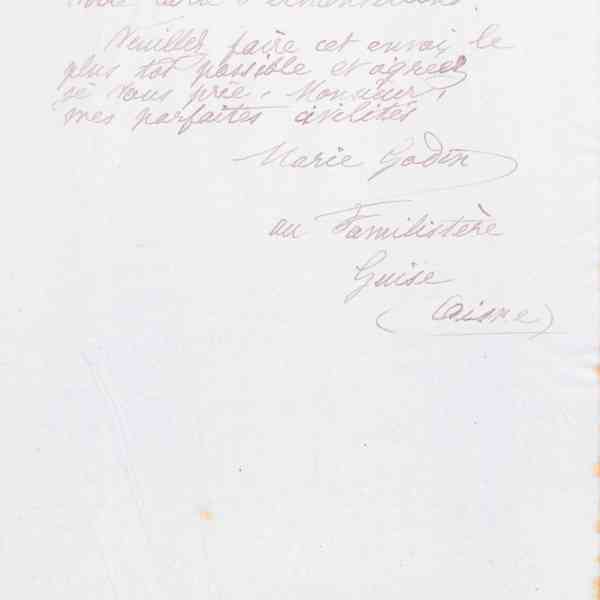 Veuillez faire cet envoi le
plus tôt possible et agréez
je vous prie, Monsieur,
mes parfaites civilités
Marie Godin
au Familistère
Guise
(Aisne)